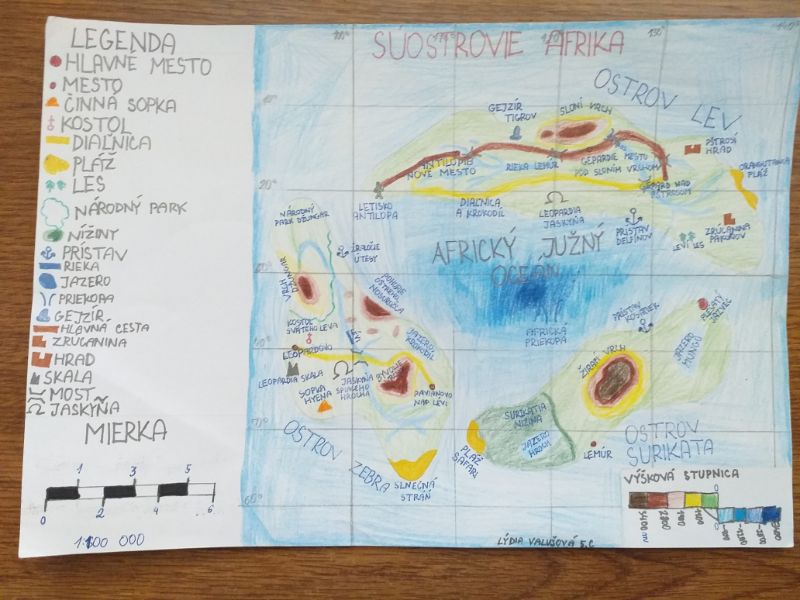 LEGENDA
HLAVNÉ MESTO
MESTO
ČINNÁ SOPKA
KOSTOL
DIAĽNICA
PLÁŽ
LES
NÁRODNÝ PARK
NÍŽINY
PRÍSTAV
RIEKA
JAZERO
PRIEKOPA
GEJZÍR
HLAVNÁ CESTA
ZRÚCANINA
HRAD
SKALA
MOST
JASKYŇA
MIERKA
1 3 5
0 2 4 6
1:100 000
SÚOSTROVIE AFRIKA
130°
140°
OSTROV LEV
GEJZÍR
TIGROV
SLONÍ VRCH
PŠTROSÍ
HRAD
ANTILOPIE
NOVÉ MESTO
RIEKA LEMUR
GEPARDIE MESTO
POD SLONÍM VRCHOM
GEPARD NAD
PŠTROSOM
ORANGUTANIA
PLÁŽ
LETISKO
ANTILOPA
DIAĽNICA
A KROKODÍL
LEOPARDIA
JASKYŇA
PRÍSTAV
DELFÍNOV
LEVÍ LES
ZRÚCANINA
PAKOŇOV
AFRICKÝ JUŽNÝ
OCEÁN
AFRICKÁ
PRIEKOPA
NÁRODNÝ
PARK DŽUNGĽA
ÚTESY
VRCH
POHORIE
OSTRÉHO
NOSOROŽCA
KOSTOL
SVÄTÉHO LEVA
JAZERO
KROKODÍL
LEOPARDOVO
LEOPARDIA SKALA
SOPKA
HYENA
JASKYŇA
SPIACEHO
HROCHA
PAVIÁNOVO
NAD LEVÍ
OSTROV ZEBRA
SLNEČNÁ
STRÁŇ
PRÍSTAV
PLEŠATÝ
JAZVEC
JAZERO
MUNGO
ŽIRAFÍ VRCH
SURIKATIA
NÍŽINA
JAZERO
HROCH
PLÁŽ
SAFARI
LEMÚR
OSTROV
SURIKATA
VÝŠKOVÁ STUPNICA
LÝDIA VALUŠOVÁ 5.C